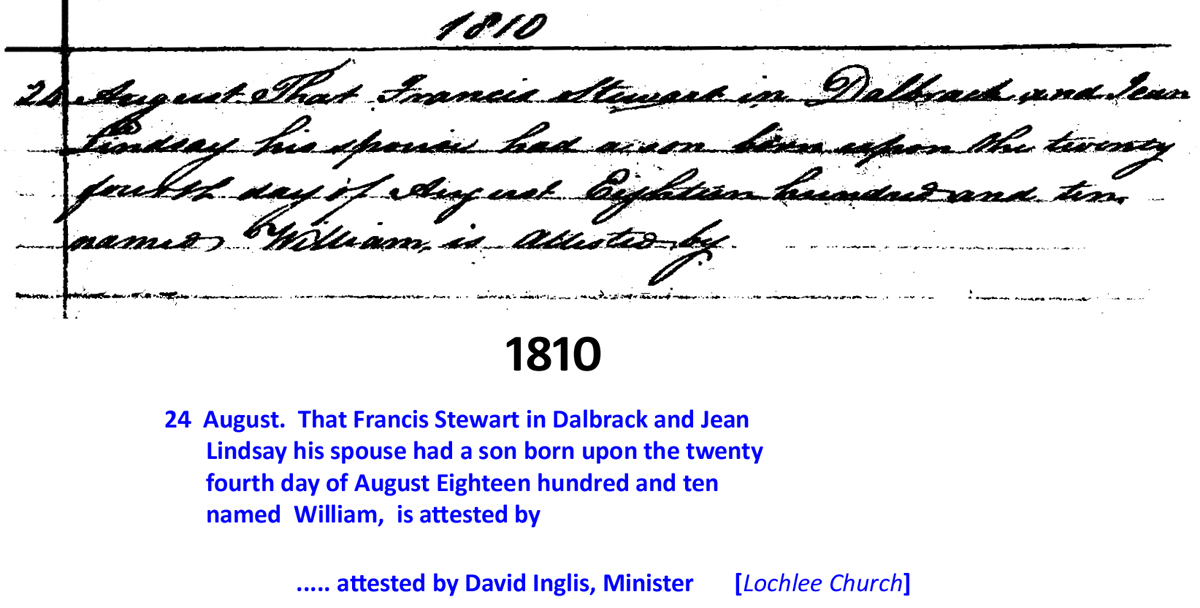 1810
24 August That Francis Stewart in Dalbrack and Jean
Lindsay his spouse had a son born upon the twenty
fourth day of August Eighteen hundred and ten
named William, is attested by
1810
24 August. That Francis Stewart in Dalbrack and Jean
Lindsay his spouse had a son born upon the twenty
fourth day of August Eighteen hundred and ten
named William, is attested by
..... attested by David Inglis, Minister [Lochlee Church]